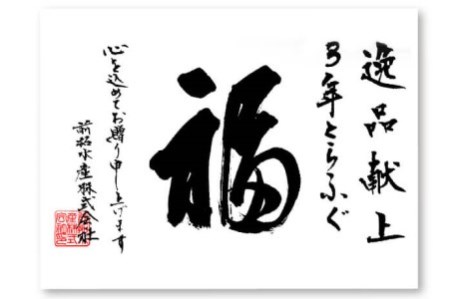 逸品献上
3年とらふぐ
福
心を込めてお贈り申し上げます
前松水産株式会社